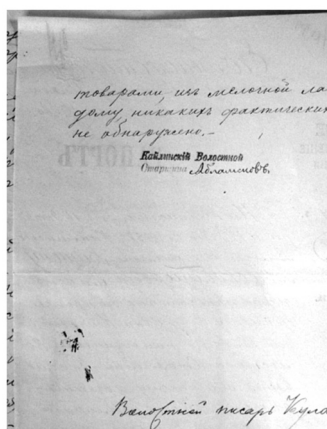 товарами изъ мелочной ла
дому, никакихъ фактических
не обнаружено.-
Кайлинскій Волостной
Старшина Абламсковъ.
Волостной писарь Кула